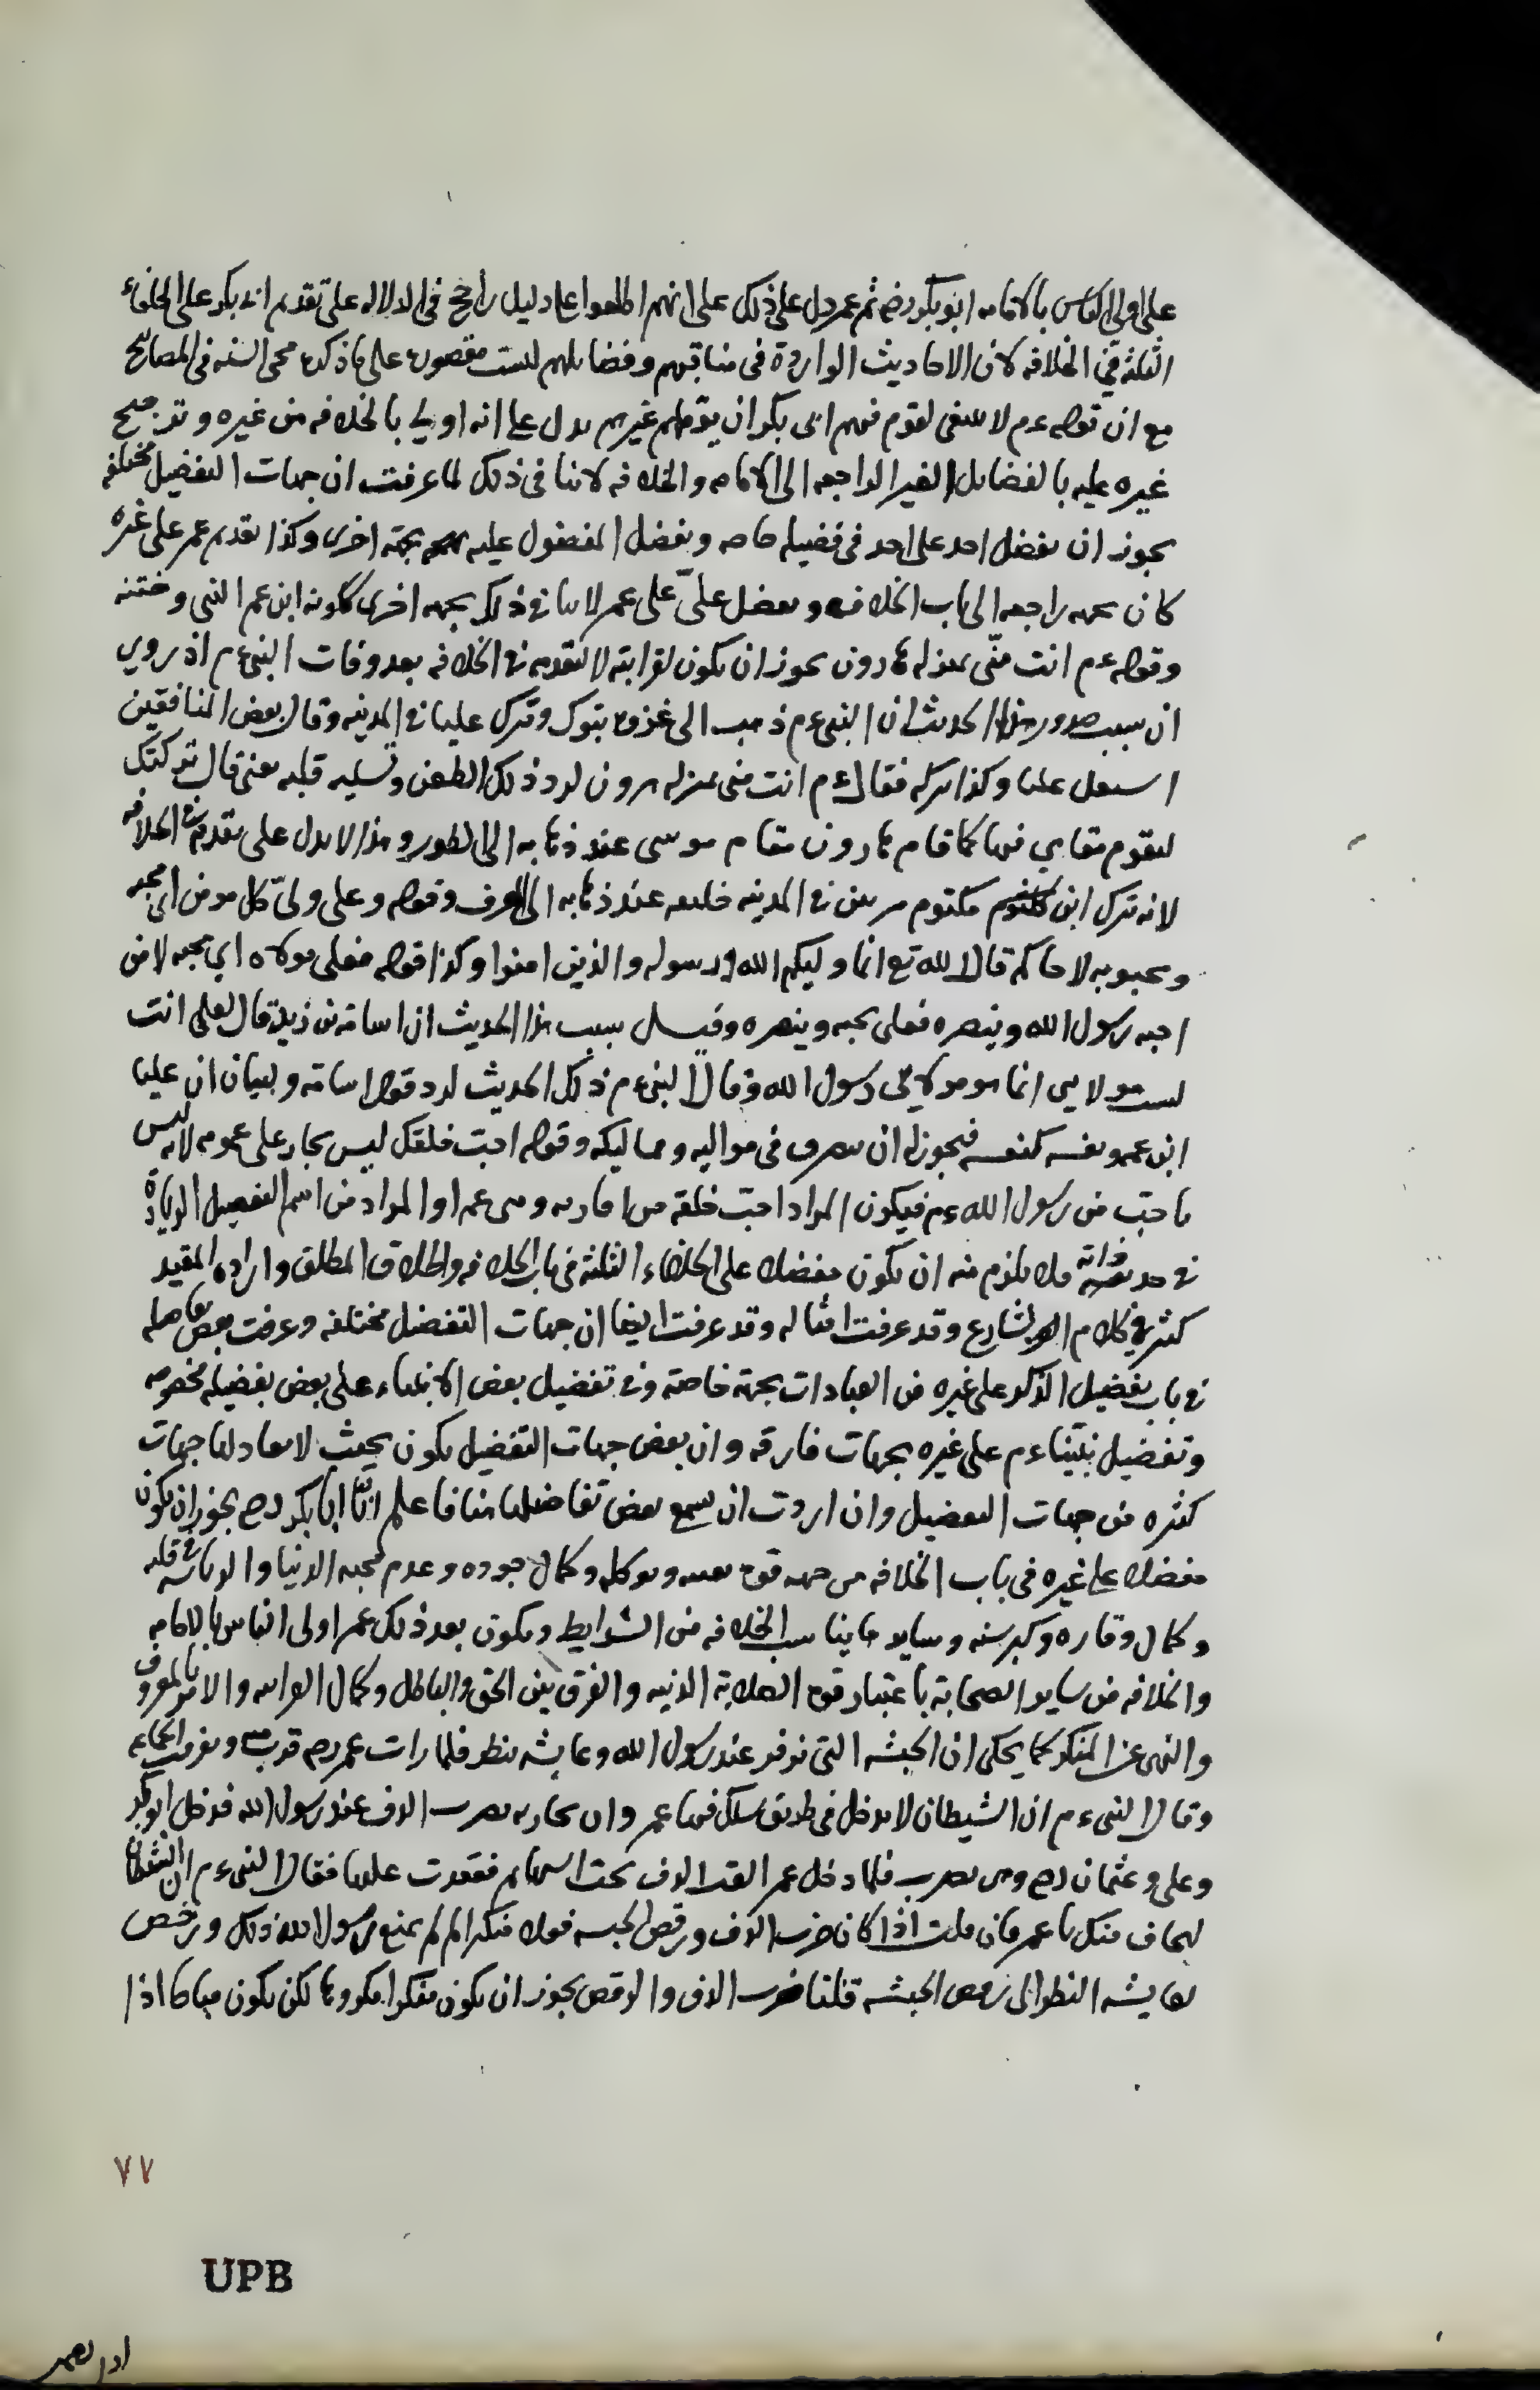 على اولى الناس بالامامه ابو بكر رضه ثم عمر دل على ذلك على انهم اطلعوا على دليل راجح في الدلاله على تقديم ابى بكر على الخلفاء
الثلثة في الخلافه لان الاحاديث الواردة في مناقبهم وفضايلهم ليست مقصورة على ما ذكره محى السنه في المصابيح
مع ان قوله عم لا ينبغى لقوم فيهم ابى بكر ان يؤمهم غيرهم يدل على انه اولى بالخلافه من غيره وترجيح
غيره عليه بالفضايل الغير الراجعه الى الامامه والخلافه لا ينافى ذلك لما عرفت ان جهات التفضيل مختلفه
يجوز ان يفضل احد على احد في فضيله خاصه ويفضل المفضول عليه بجهة اخرى وكذا تقديم عمر على غيره
كان بجهه راجعه الى باب الخلافه وبفضل علىّ على عمر لا ينافى ذلك بجهه اخرى ككونه ابن عم النبى وختنه
وقوله عم انت منّى بمنزله هارون يجوز ان يكون لقرابته لا لتقدمه في الخلافه بعد وفات النبى عم اذ روي
ان سبب صدور هذا الحديث ان النبى عم ذهب الى غزوه تبوك وترك عليا في المدينه وقال بعض المنافقين
استثقل عليا وكذا تركه فقال عم انت منى بمنزله هرون لرد ذلك الطعن وتسليه قلبه يعنى قال تركتك
لتقوم مقامي فيها كما قام هارون مقام موسى عند ذهابه الى الطور وهذا لا يدل على تقدمه في الخلافه
لانه ترك ابن كلثوم مكتوم مرتين في المدينه خليفه عند ذهابه الى وقوله وعلى ولىّ كل مومن اى محبه
ومحبوبه لا حاكم قال الله تع انما وليكم الله ورسوله والذين امنوا وكذا قوله فعلى مولاه اي محبه لا من
احبه رسول الله وينصره فعلى يحبه وينصره وقيل سبب هذا الحديث ان اسامة بن زيد قال لعلى انت
لست مولايى انما هو مولايى رسول الله وقال النبى عم ذلك الحديث لرد قول اسامة وبيان ان عليا
ابن عمه ونفسه كنفسه فيجوز له ان يتصرف في مواليه ومماليكه وقوله احبّ خلقك ليس بجار على عمومه لانه ليس
باحبّ من رسول الله عم فيكون المراد احبّ خلقه من اقاربه وبنى عمه او المراد من اسم التفضيل الزيادة
في حد نفسه وذاته ولا يلزم منه ان يكون مفضلا على الخلفاء الثلثة في باب الخلافه واطلاق المطلق وارادة المقيد
كثير في كلام الشارع وقد عرفت امثاله وقد عرفت ايضا ان جهات التفضيل مختلفه وعرفت بعض تفاصيله
في باب تفضيل الذكر على غيره من العبادات بجهة خاصة وفي تفضيل بعض الانبياء على بعض بفضيله مخصوصه
وتفضيل نبيّنا عم على غيره بجهات فارقه وان بعض جهات التفضيل يكون بحيث لا يعادلها جهات
كثيره من جهات التفضيل وان اردت ان تسمع بعض تفاضلها هنا فاعلم ان ابا بكر رضه يجوز ان يكون
مفضلا على غيره في باب الخلافه من جهه قوة نفسه وتوكله وكمال جوده وعدم محبه الدنيا والرياسه في قلبه
وكمال وقاره وكبر سنه وساير ما يناسب الخلافه من الشرايط ويكون بعد ذلك عمر اولى الناس بالامامه
والخلافه من ساير الصحابة باعتبار قوة الصلابة الدينيه والفرق بين الحق والباطل وكمال الفراسه والامر بالمعروف
والنهى عن المنكر كما يحكى ان الحبشه التى تزفر عند رسول الله وعايشه ينظر فلما رات عمر رضه
وقال النبى عم ان الشيطان لا يدخل في طريق سلك فيها عمر وان جاريه تضرب الدف عند رسول الله فدخل ابو بكر
وعلى وعثمان رضه وهى تضرب فلما دخل عمر القت الدف تحت استها ثم فقعدت عليها فقال النبى عم ان الشيطان
ليخاف منك يا عمر فان قلت اذا كان ضرب الدف ورقص الحبشه فعلا منكرا لم لم يمنع رسول الله ذلك ورخص
لعايشه النظر الى رقص الحبشه قلنا ضرب الدف والرقص يجوز ان يكون منكرا مكروها لكن يكون مباحا اذا
٧٧
UPB